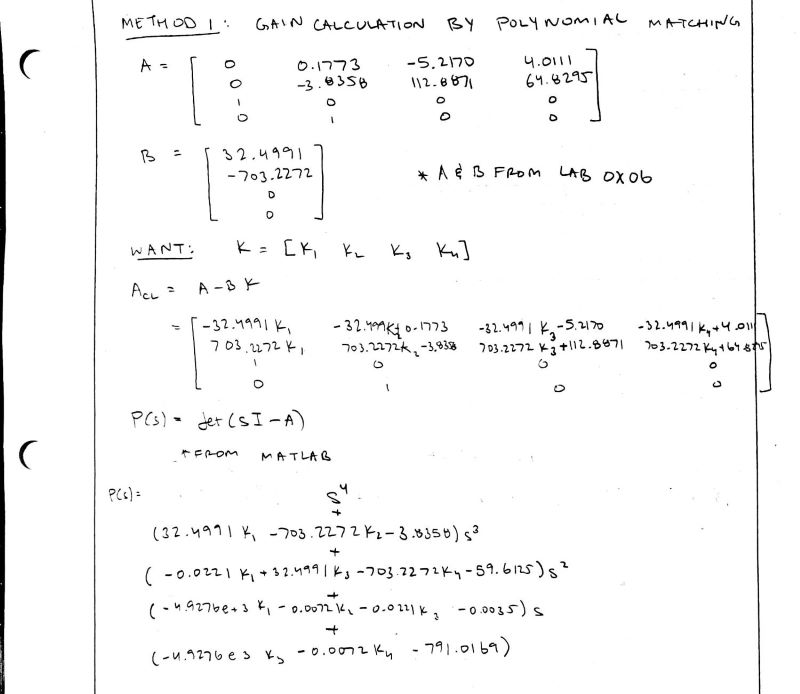 METHOD 1: GAIN CALCULATION BY POLYNOMIAL MATCHING
A = [ 0 0.1773 -5.2170 4.0111
0 -3.8358 112.8871 64.8295
1 0 0 0
0 1 0 0 ]
B = [ 32.4991
-703.2272
0
0 ]
* A & B FROM LAB 0X06
WANT: K = [K1 K2 K3 K4]
ACL = A-BK
= [ -32.4991 K1 -32.499K2 0.1773 -32.4991 K3 -5.2170 -32.4991 K4+4.011
703.2272 K1 703.2272K2 -3.838 703.2272 K3 +112.8871 703.2272 K4+64.825
1 0 0 0
0 1 0 0 ]
P(s) = det(sI-A)
*FROM MATLAB
P(s)=
s4
+
(32.4991 K1 -703.2272 K2 -3.8358) s3
+
(-0.0221 K1 + 32.4991 K3 -703.2272 K4 -59.6125) s2
+
(-4.9276e+3 K1 -0.0072 K2 -0.0221 K3 -0.0035) s
+
(-4.9276e3 K3 -0.0072 K4 -791.0169)